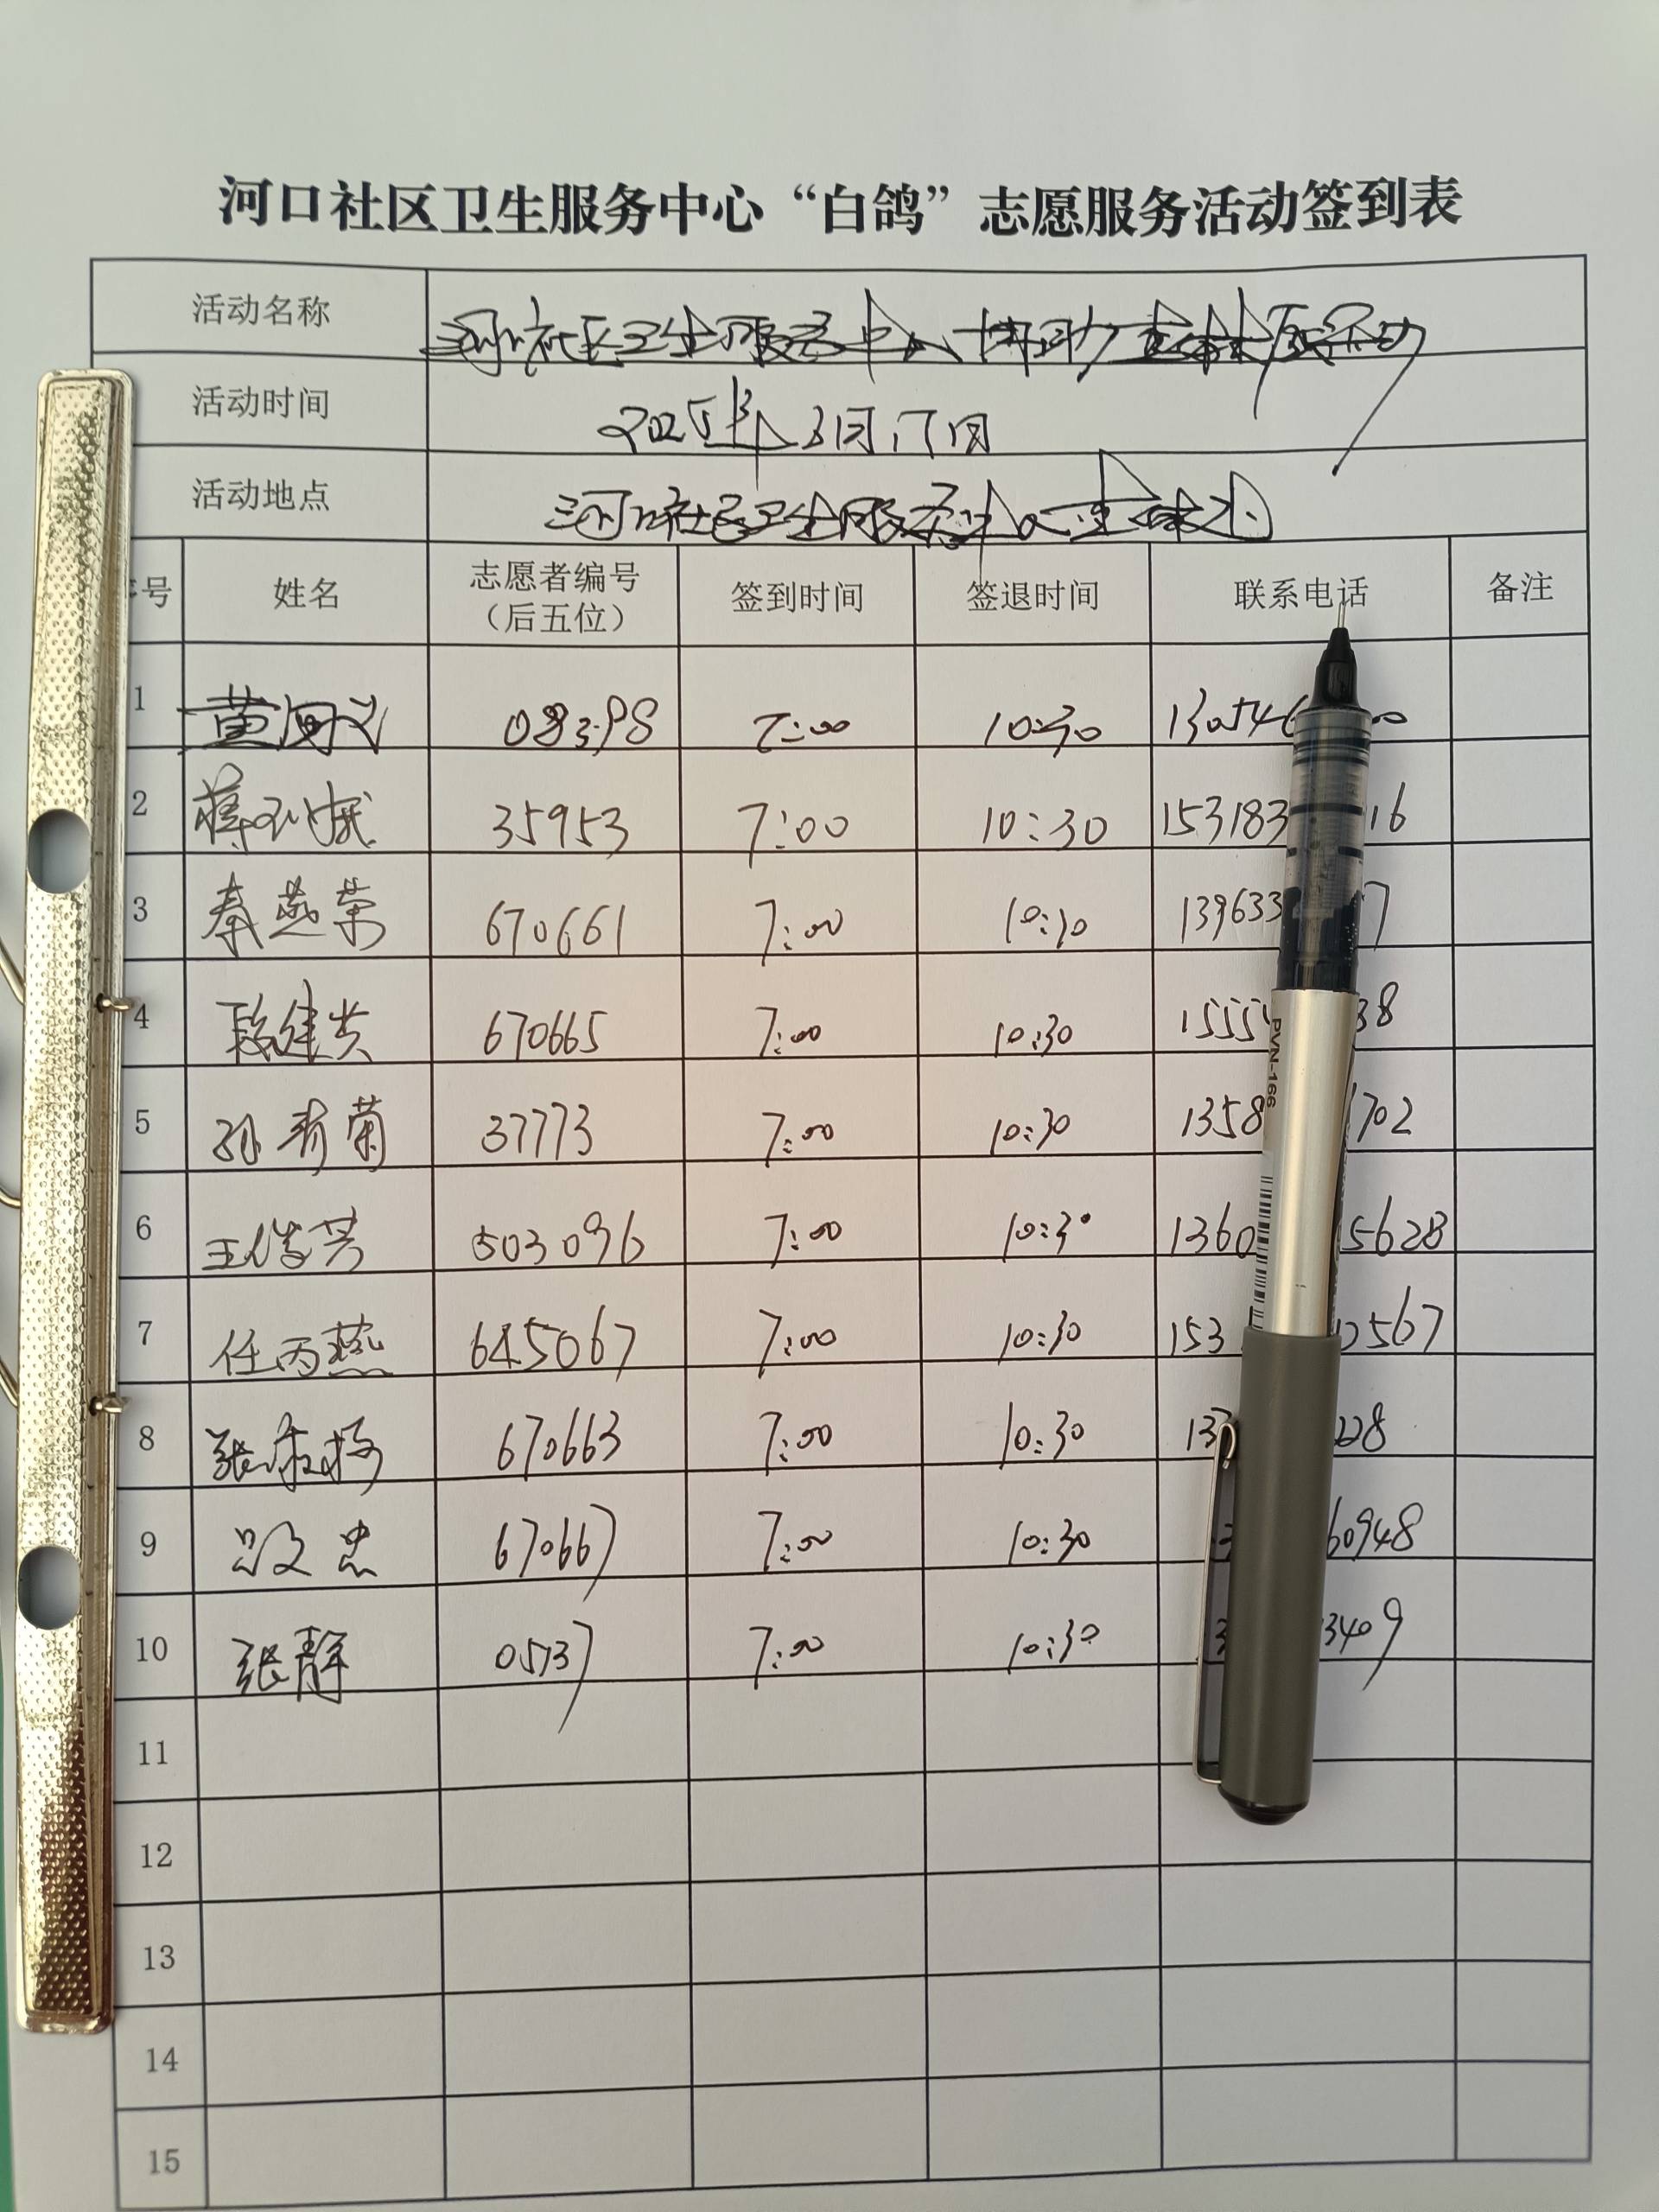 河口社区卫生服务中心“白鸽”志愿服务活动签到表
活动名称 河口社区卫生服务中心协助查体
活动时间 2025年3月17日
活动地点 河口社区卫生服务中心查体处
序号 姓名 志愿者编号（后五位） 签到时间 签退时间 联系电话 备注
1 黄河义 08398 7:00 10:30 130546 00
2 蒋 35953 7:00 10:30 153183 16
3 秦燕荣 670661 7:00 10:30 139633 7
4 段建芳 670665 7:00 10:30 1555 38
5 孙秀菊 37773 7:00 10:30 1358 1702
6 王俊芳 503096 7:00 10:30 1360 5628
7 任丙燕 645067 7:00 10:30 153 2567
8 张 670663 7:00 10:30 137 228
9 忠 670667 7:00 10:30 60948
10 张静 05737 7:00 10:30 3409
11
12
13
14
15
PVN-166